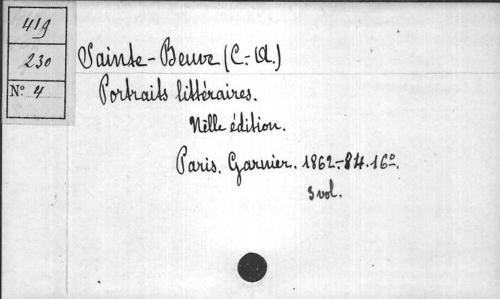 419
230
N° 4
Sainte-Beuve (C.-A.)
Portraits littéraires.
Nelle édition.
Paris. Garnier. 1862-84. 16°.
3 vol.